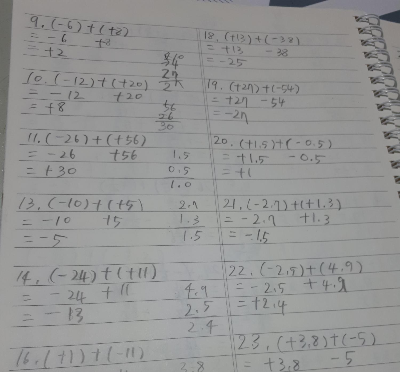 9. (-6)+(+8)
= -6 +8
= +2
10. (-12)+(+20)
= -12 +20
= +8
56
26
30
11. (-26)+(+56)
= -26 +56
= +30
1.5
0.5
1.0
13. (-10)+(+5)
= -10 +5
= -5
2.7
1.3
1.5
14. (-24)+(+11)
= -24 +11
= -13
4.9
2.5
2.4
16. (+1)+(-11)
3.8
18. (+13)+(-38)
= +13 -38
= -25
19. (+27)+(-54)
= +27 -54
= -27
20. (+1.5)+(-0.5)
= +1.5 -0.5
= +1
21. (-2.7)+(+1.3)
= -2.7 +1.3
= -1.5
22. (-2.5)+(4.9)
= -2.5 +4.9
= +2.4
23. (+3.8)+(-5)
= +3.8 -5